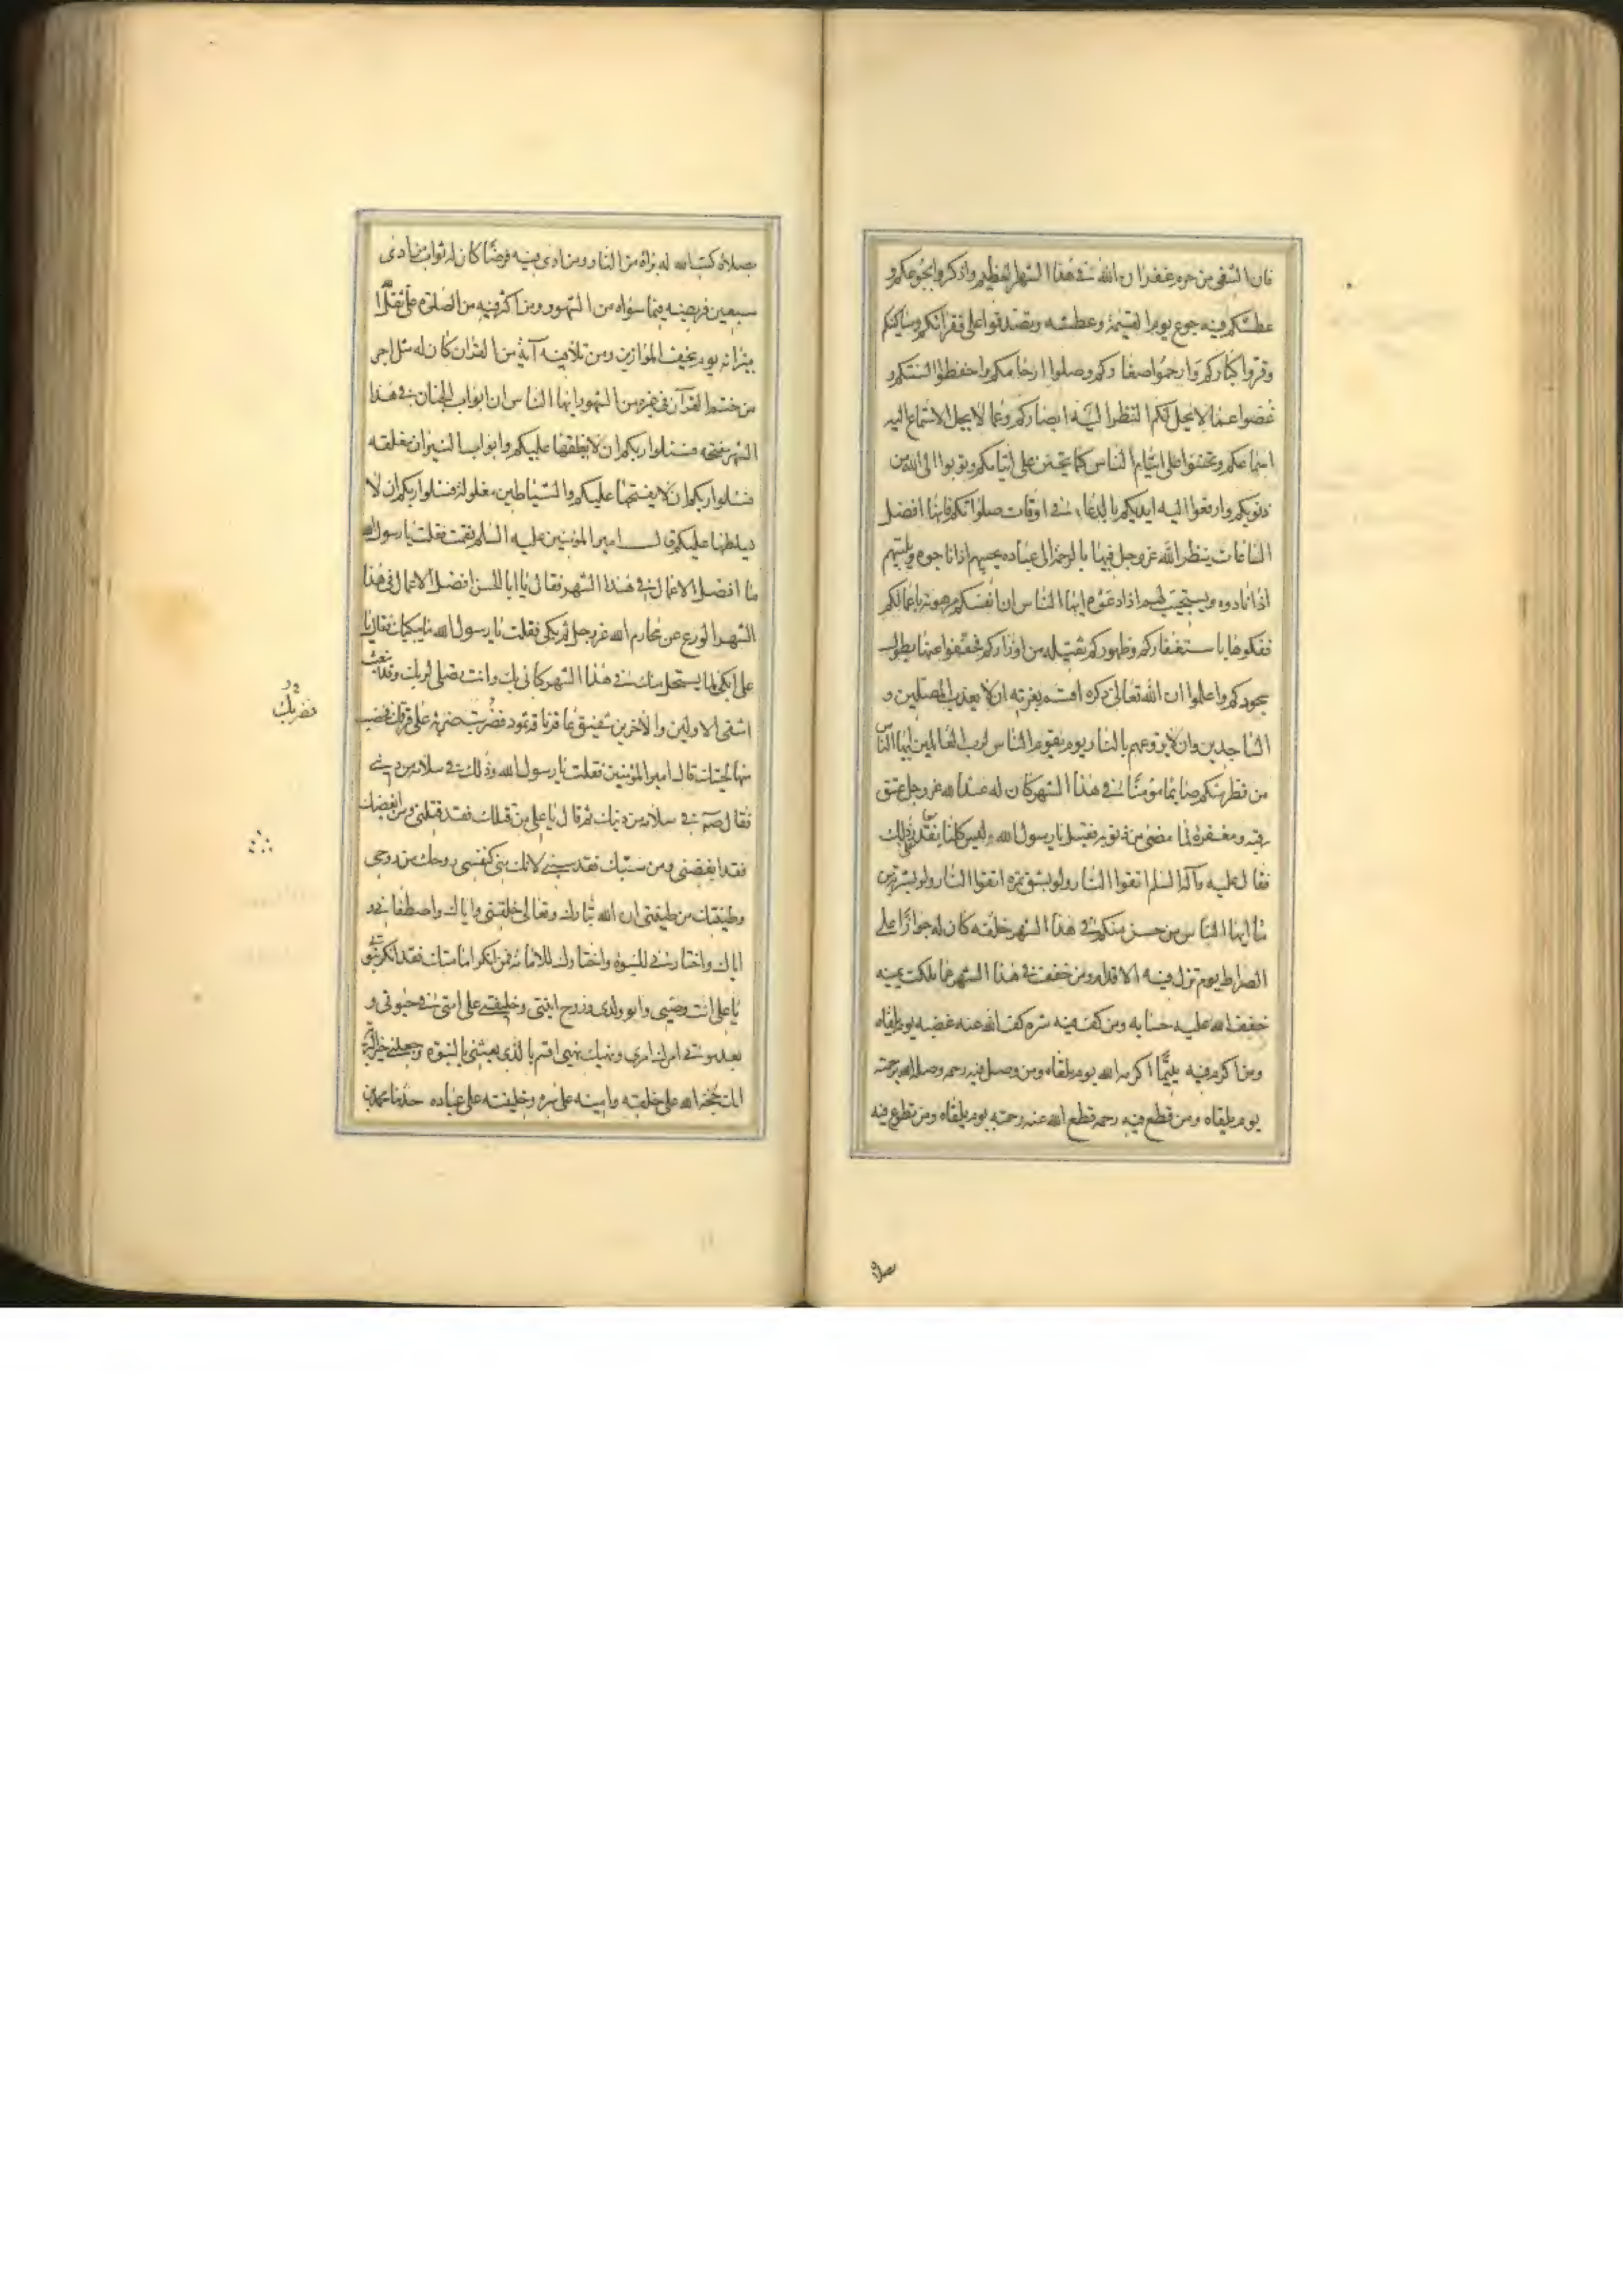 فان الشقى من حرم غفران الله فى هذا الشهر العظيم واذكروا بجوعكم و
عطشكم فيه جوع يوم القيٰمة وعطشه وتصدقوا على فقرائكم ومساكينكم
وقروا كباركم وارحموا صغاركم وصلوا ارحامكم واحفظوا السنتكم و
غضوا عما لا يحل لكم النظر اليه ابصاركم وعما لا يحل الاستماع اليه
اسماعكم وتحننوا على ايتام الناس كما يتحنن على ايتامكم وتوبوا الى الله من
ذنوبكم وارفعوا اليه ايديكم بالدعاء فى اوقات صلواتكم فانها افضل
الساعات ينظر الله عز وجل فيها بالرحمة الى عباده يجيبهم اذا ناجوه ويلبيهم
اذا نادوه ويستجيب لهم اذا دعوه ايها الناس ان انفسكم مرهونة باعمالكم
ففكوها باستغفاركم وظهوركم ثقيلة من اوزاركم فخففوا عنها بطول
سجودكم واعلموا ان الله تعالى ذكره اقسم بعزته ان لا يعذب المصلين و
الساجدين وان لا يروعهم بالنار يوم يقوم الناس لرب العالمين ايها الناس
من فطر منكم صائما مؤمنا فى هذا الشهر كان له عند الله عز وجل عتق
رقبة ومغفرة لما مضى من ذنوبه فقيل يا رسول الله وليس كلنا يقدر على ذلك
فقال عليه وآله السلم اتقوا النار ولو بشق تمرة اتقوا النار ولو بشربة من
ماء ايها الناس من حسن منكم فى هذا الشهر خلقه كان له جوازا على
الصراط يوم تزل فيه الاقدام ومن خفف فى هذا الشهر عما ملكت يمينه
خفف الله عليه حسابه ومن كف فيه شره كف الله عنه غضبه يوم يلقاه
ومن اكرم فيه يتيما اكرمه الله يوم يلقاه ومن وصل فيه رحمه وصله الله برحمته
يوم يلقاه ومن قطع فيه رحمه قطع الله عنه رحمته يوم يلقاه ومن تطوع فيه
بصلاة
بصلاة كتب الله له براة من النار ومن ادى فيه فرضا كان له ثواب من ادى
سبعين فريضة فيما سواه من الشهور ومن اكثر فيه من الصلوة على ثقل الله
ميزانه يوم يخفف الموازين ومن تلا فيه آية من القران كان له مثل اجر
من ختم القرآن فى غيره من الشهور ايها الناس ان ابواب الجنان فى هذا
الشهر مفتحة فسئلوا ربكم ان لا يغلقها عليكم وابواب النيران مغلقه
فسئلوا ربكم ان لا يفتحها عليكم والشياطين مغلولة فسئلوا ربكم ان لا
يسلطها عليكم قال امير المؤمنين عليه السلم فقمت فقلت يا رسول الله
ما افضل الاعمال فى هذا الشهر فقال يا ابا الحسن افضل الاعمال فى هذا
الشهر الورع عن محارم الله عز وجل ثم بكى فقلت يا رسول الله ما يبكيك فقال يا
على ابكى لما يستحل منك فى هذا الشهر كانى بك وانت تصلى لربك وقد انبعث
اشقى الاولين والاخرين شقيق عاقر ناقة ثمود فضربك ضربة على قرنك فخضب
منها لحيتك قال امير المؤمنين فقلت يا رسول الله وذلك فى سلامة من دينى
فقال صم فى سلامة من دينك ثم قال يا على من قتلك فقد قتلنى ومن ابغضك
فقد ابغضنى ومن سبك فقد سبنى لانك منى كنفسى روحك من روحى
وطينتك من طينتى ان الله تبارك وتعالى خلقنى واياك واصطفانى و
اياك واختارنى للنبوة واختارك للامامة فمن انكر امامتك فقد انكر نبوتى
يا على انت وصيى وابو ولدى وزوج ابنتى وخليفتى على امتى فى حيوتى و
بعد موتى امرك امرى ونهيك نهيى اقسم بالذى بعثنى بالنبوة وجعلنى خير البرية
انك لحجة الله على خلقه وامينه على سره وخليفته على عباده حدثنا محمد بن
فضربك